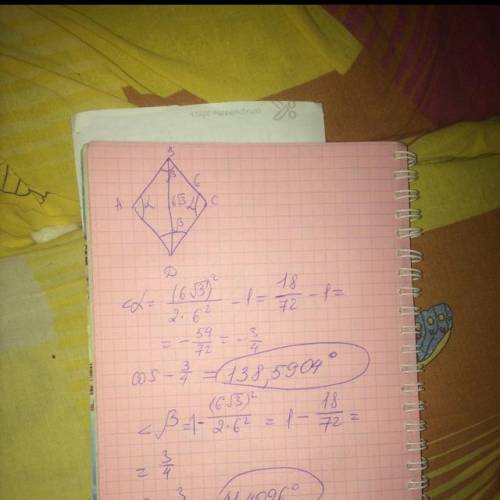 B
β 6
A α 6√3 α C
β
D
<α = (6√3)² / 2·6² - 1 = 18/72 - 1 =
= - 54/72 = - 3/4
cos - 3/4 = 138,5904°
<β = 1 - (6√3)² / 2·6² = 1 - 18/72 =
= 3/4
3 41,4096°